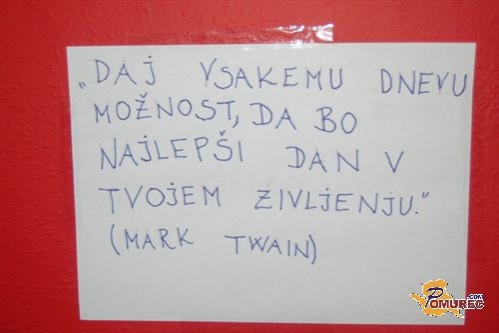 „DAJ VSAKEMU DNEVU
MOŽNOST, DA BO
NAJLEPŠI DAN V
TVOJEM ŽIVLJENJU.“
(MARK TWAIN)
POMUREC.COM